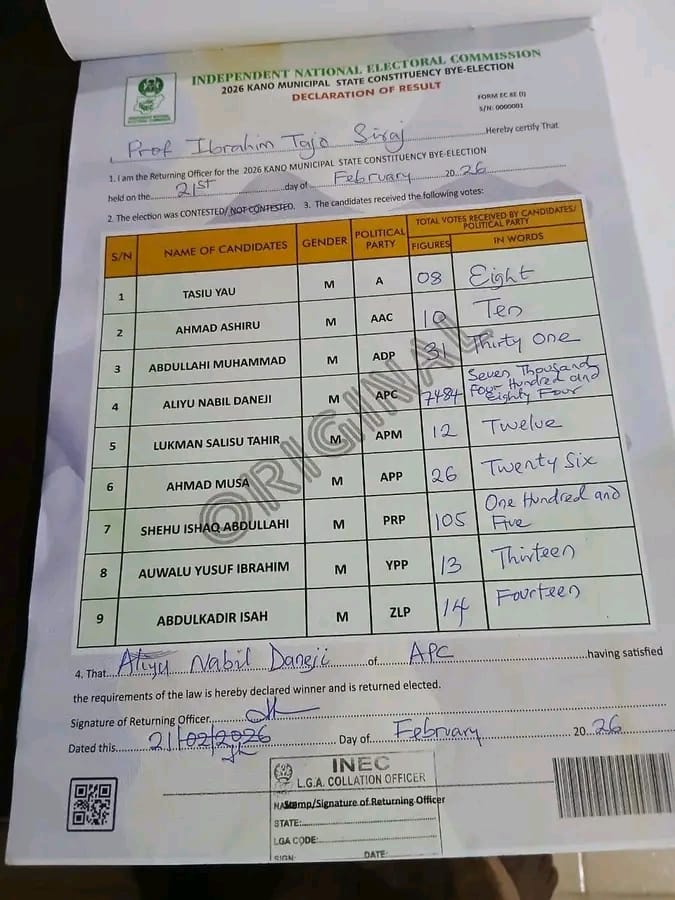 INDEPENDENT NATIONAL ELECTORAL COMMISSION
2026 KANO MUNICIPAL STATE CONSTITUENCY BYE-ELECTION
DECLARATION OF RESULT
FORM EC 8E (I)
S/N: 0000001
INDEPENDENT NATIONAL ELECTORAL COMMISSION
Prof Ibrahim Tajo Siraj Hereby certify That
1. I am the Returning Officer for the 2026 KANO MUNICIPAL STATE CONSTITUENCY BYE-ELECTION
held on the 21st day of February 20 26
2. The election was CONTESTED/ NOT CONTESTED. 3. The candidates received the following votes:
S/N NAME OF CANDIDATES GENDER POLITICAL PARTY TOTAL VOTES RECEIVED BY CANDIDATES/ POLITICAL PARTY
FIGURES IN WORDS
1 TASIU YAU M A 08 Eight
2 AHMAD ASHIRU M AAC 10 Ten
3 ABDULLAHI MUHAMMAD M ADP 31 Thirty One
4 ALIYU NABIL DANEJI M APC 7484 Seven Thousand Four Hundred and Eighty Four
5 LUKMAN SALISU TAHIR M APM 12 Twelve
6 AHMAD MUSA M APP 26 Twenty Six
7 SHEHU ISHAQ ABDULLAHI M PRP 105 One Hundred and Five
8 AUWALU YUSUF IBRAHIM M YPP 13 Thirteen
9 ABDULKADIR ISAH M ZLP 14 Fourteen
ORIGINAL
4. That Aliyu Nabil Daneji of APC having satisfied
the requirements of the law is hereby declared winner and is returned elected.
Signature of Returning Officer
Dated this 21/02/2026 Day of February 20 26
INEC
L.G.A. COLLATION OFFICER
Stamp/Signature of Returning Officer
STATE:
LGA CODE:
SIGN: DATE: